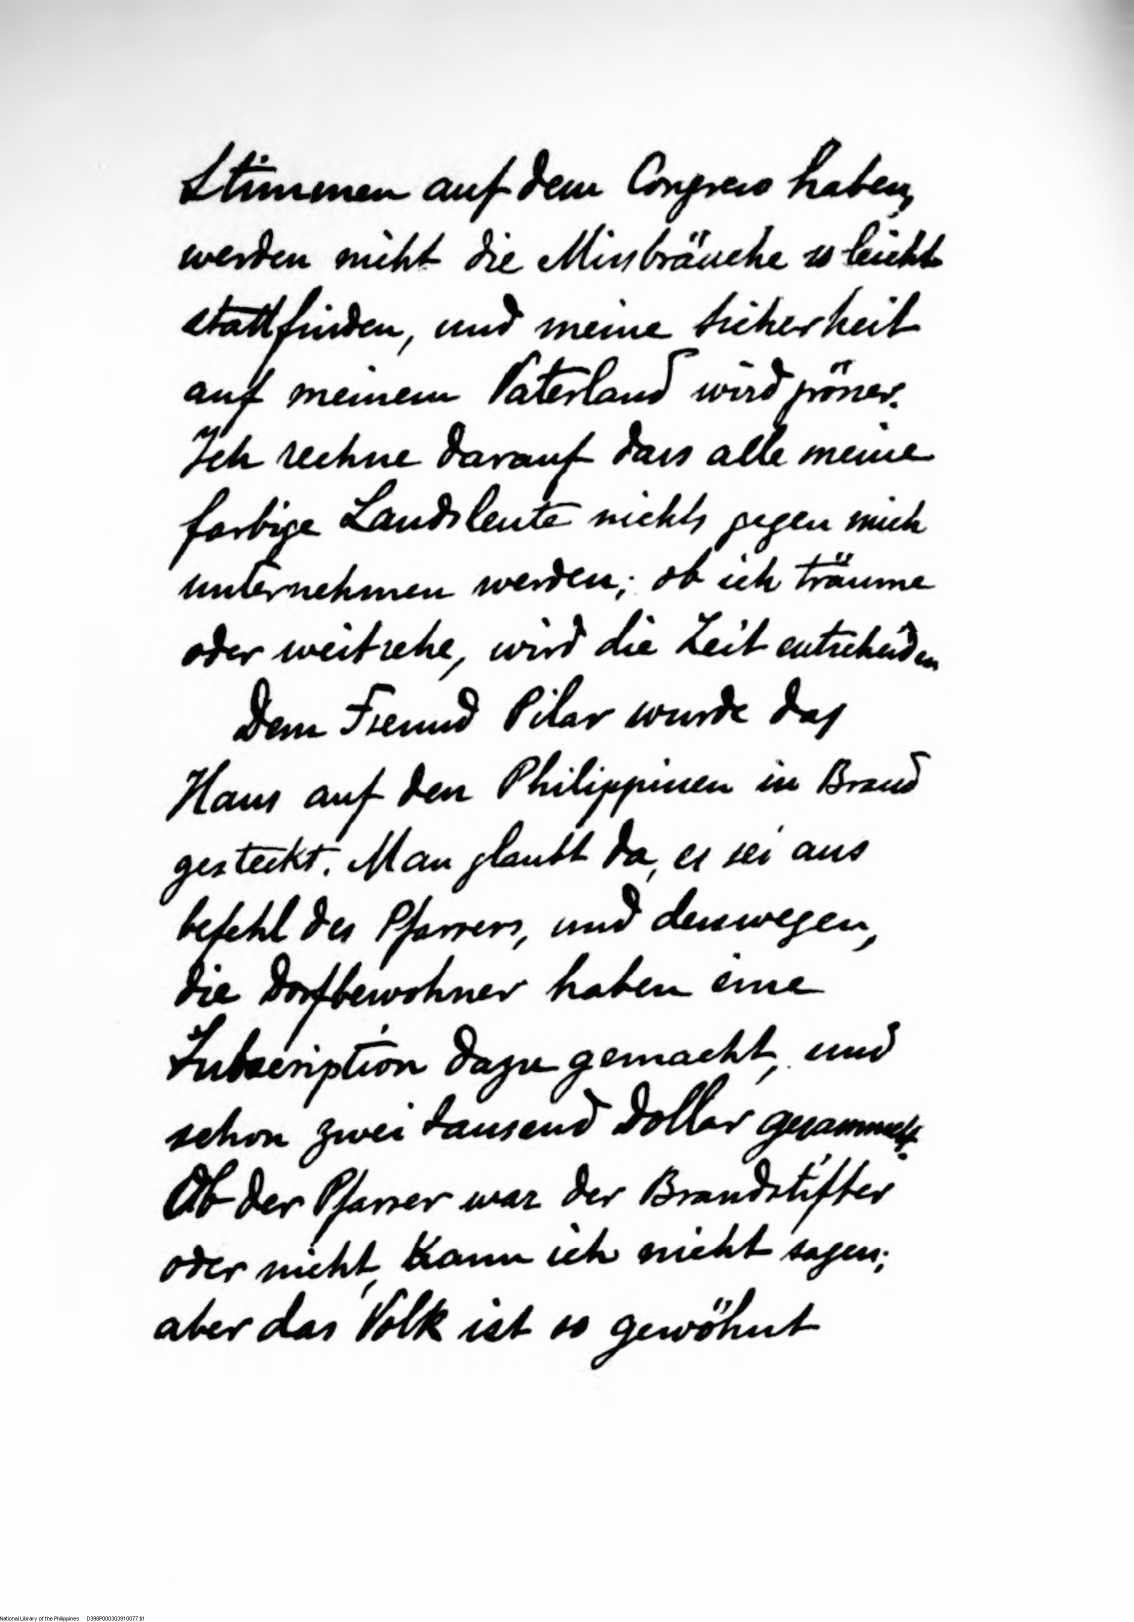 Stimmen auf dem Congreso haben,
werden nicht die Missbräuche so leicht
stattfinden, und meine Sicherheit
auf meinem Vaterland wird gröner.
Ich rechne darauf dass alle meine
farbige Landsleute nichts gegen mich
unternehmen werden; ob ich träume
oder weitsehe, wird die Zeit entscheiden
Dem Freund Pilar wurde das
Haus auf den Philippinen in Brand
gesteckt. Man glaubt da, es sei aus
befehl des Pfarrers, und desswegen,
die Dorfbewohner haben eine
Subscription dazu gemacht, und
schon zwei tausend Dollar gesammelt.
Ob der Pfarrer war der Brandstifter
oder nicht, kann ich nicht sagen;
aber das Volk ist so gewöhnt
National Library of the Philippines